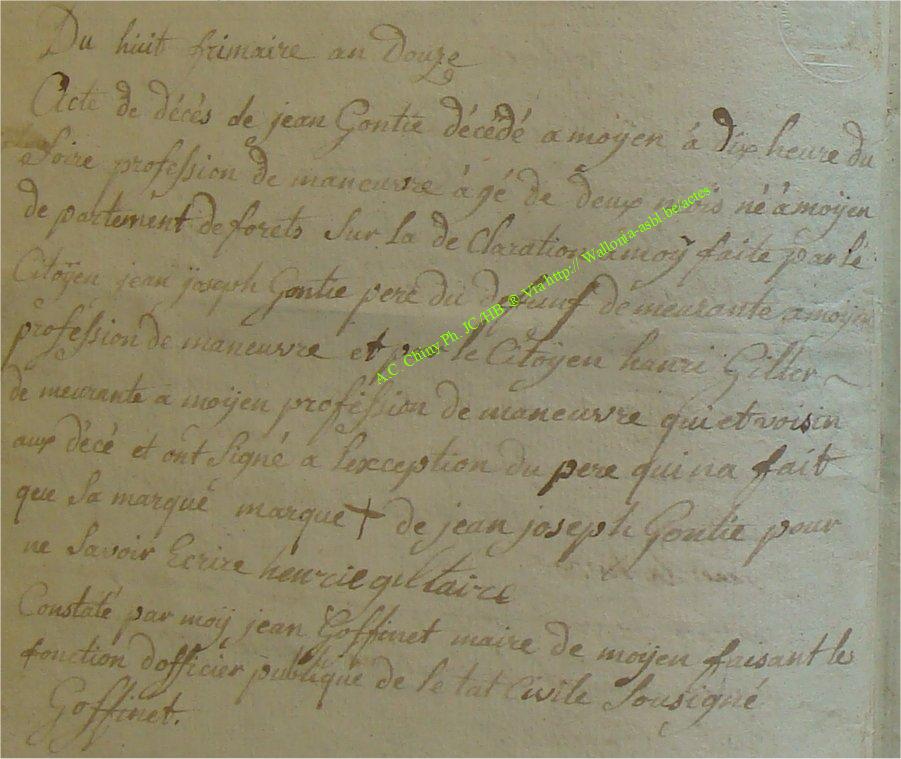 Du huit frimaire an Douze
Acte de décès de jean Gontie décédé a moÿen á dix heure du
Soire profession de maneuvre âgé de deux mois né à moÿen
de partement deforets Sur La de Claration a moÿ faite par le
Citoÿen jean jÿoseph Gontie pere du defeunf demeurante a moÿen
profession de maneuvre et par le Citoÿen hanri Giller
de meurante a moÿen profession de maneuvre qui et voisin
aux décé et ont Signé a lexception du pere qui na fait
que Sa marque marque + de jean joseph Gontie pour
ne Savoir Ecrire henrie
Constaté par moÿ jean Goffinet maire de moÿen faisant les
fonction dofficier publique de Le tat Civile Sousigné
Goffinet.
A.C. Chiny Ph. JC/HB ® Via http:// Wallonia-asbl.be/actes